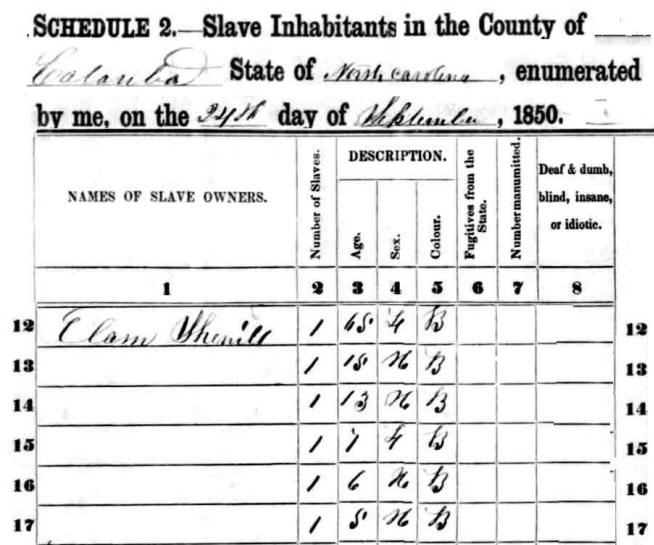 SCHEDULE 2.—Slave Inhabitants in the County of
Catawba State of North Carolina, enumerated
by me, on the 24th day of September, 1850.
NAMES OF SLAVE OWNERS. Number of Slaves. DESCRIPTION. Fugitives from the State. Number manumitted. Deaf & dumb, blind, insane, or idiotic.
Age. Sex. Colour.
1 2 3 4 5 6 7 8
12 Elam Sherrill 1 65 F B 12
13 1 15 M B 13
14 1 13 M B 14
15 1 7 F B 15
16 1 6 M B 16
17 1 5 M B 17